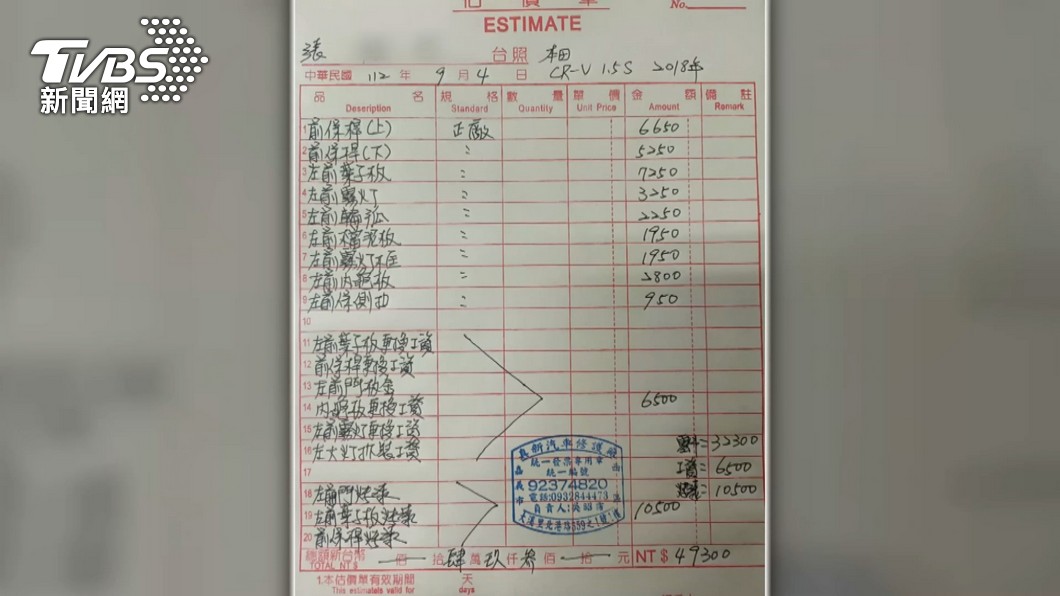 TVBS
新聞網
估 價 單
No.
ESTIMATE
張 台照 本田
中華民國 112 年 9 月 4 日 CR-V 1.5S 2018年
品 名 規 格 數 量 單 價 金 額 備 註
Description Standard Quantity Unit Price Amount Remark
1 前保桿(上) 正廠 6650
2 前保桿(下) : 5250
3 左前葉子板 : 7250
4 左前霧灯 : 3250
5 左前輪弧 : 2250
6 左前擋泥板 : 1950
7 左前霧灯框 : 1950
8 左前內龜板 : 2800
9 左前保側扣 : 950
10
11 左前葉子板更換工資
12 前保桿更換工資
13 左前門板金
14 內龜板更換工資 6500
15 左前霧灯更換工資
16 左大灯拆裝工資
17
18 左前門烤漆
19 左前葉子板烤漆 10500
20 前保桿烤漆
零件=32300
工資=6500
烤漆=10500
新汽車修護廠
統一發票專用章
統一編號
92374820
電話:0932844473
負責人:吳
嘉義市
大溪里北港路
總額新台幣 佰 拾肆萬玖仟參佰 拾 元 NT$ 49300
TOTAL NT$
1.本估價單有效期間 天
This estimate is valid for days